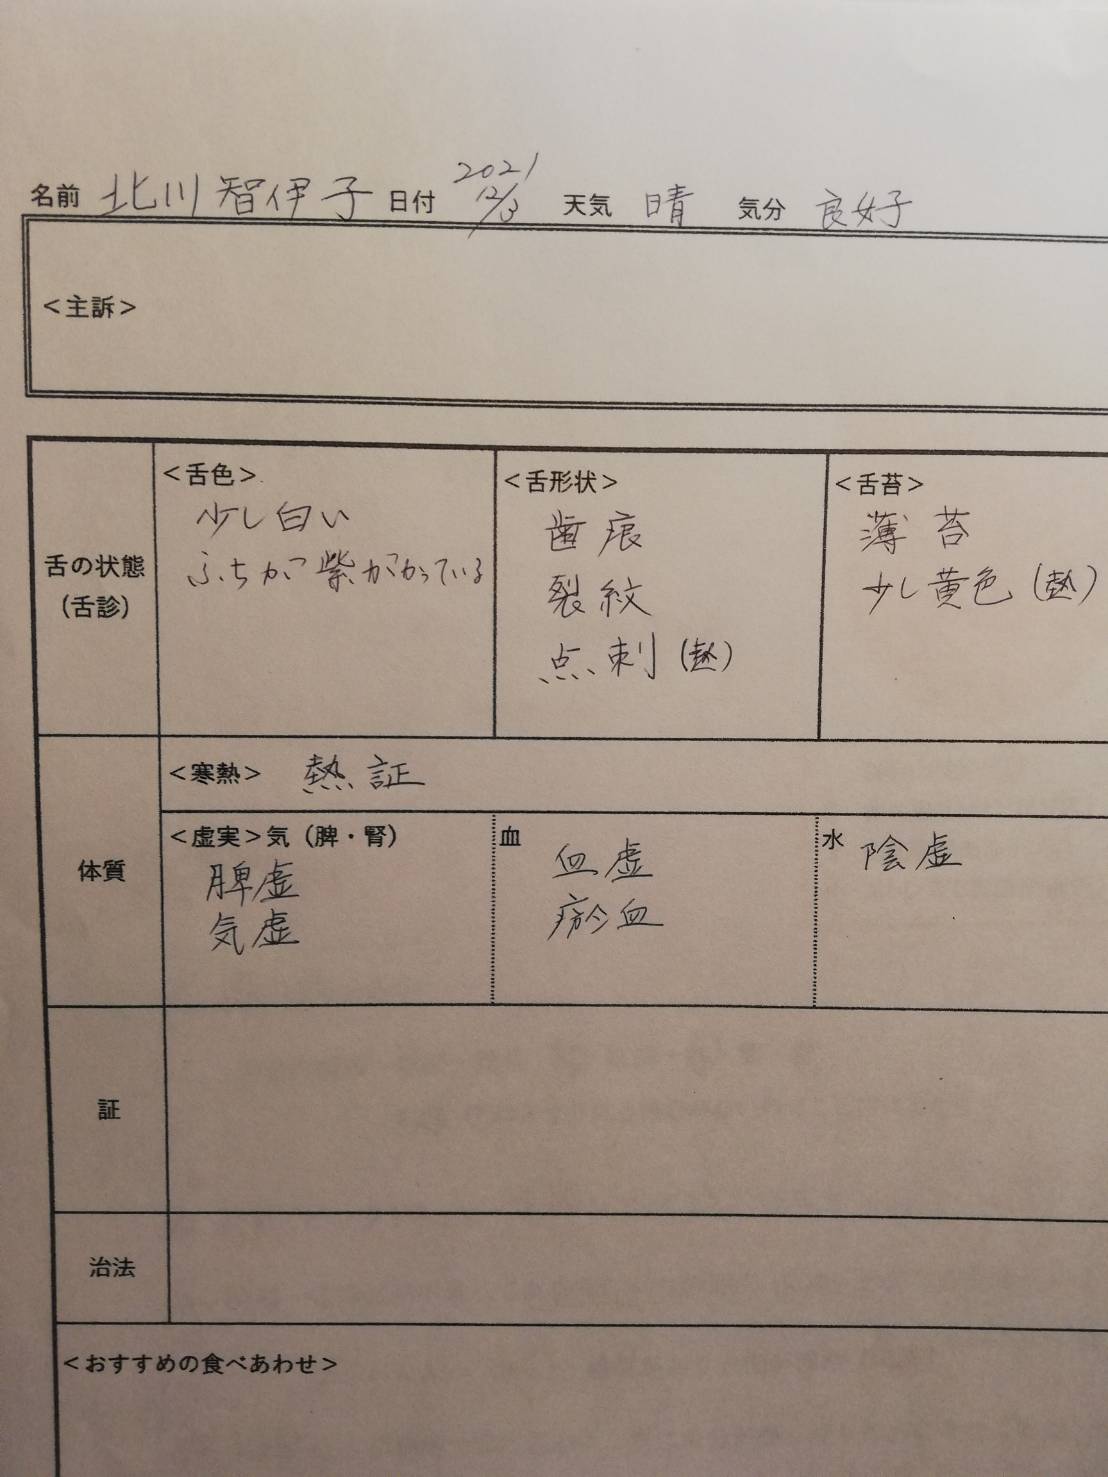 名前 北川智伊子 日付 2021 12/3 天気 晴 気分 良好
<主訴>
舌の状態
(舌診)
<舌色>
少し白い
ふちが紫がかっている
<舌形状>
歯痕
裂紋
点刺(熱)
<舌苔>
薄苔
少し黄色(熱)
体質
<寒熱> 熱証
<虚実>気(脾・腎)
脾虚
気虚
血
血虚
瘀血
水 陰虚
証
治法
<おすすめの食べあわせ>